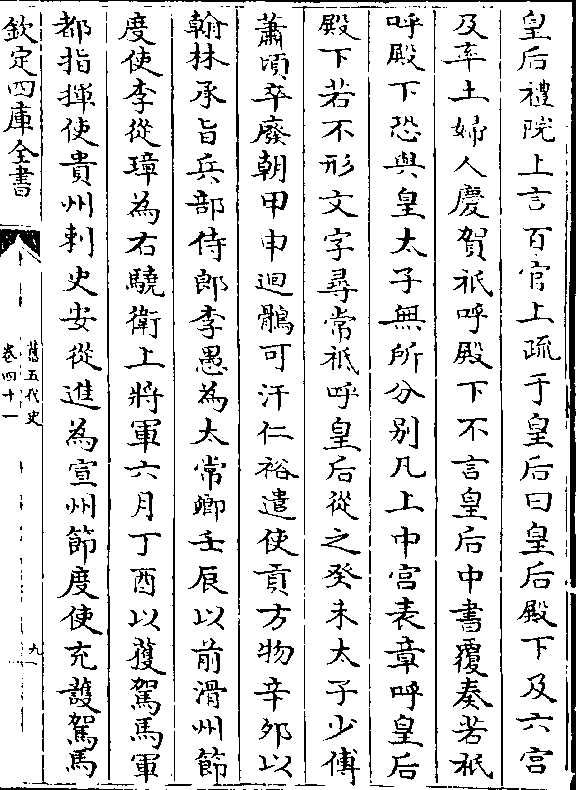 皇后禮院上言百官上疏于皇后曰皇后殿下及六宫
及率土婦人慶賀祇呼殿下不言皇后中書覆奏若祇
呼殿下恐與皇太子無所分别凡上中宫表章呼皇后
殿下若不形文字尋常祇呼皇后從之癸未太子少傅
蕭頃卒廢朝甲申迴鶻可汗仁裕遣使貢方物辛夘以
翰林承旨兵部侍郎李愚為太常卿壬辰以前滑州節
度使李從璋為右驍衛上將軍六月丁酉以䕶駕馬軍
都指揮使貴州刺史安從進為宣州節度使充䕶駕馬
欽定四庫全書
舊五代史
卷四十一
九